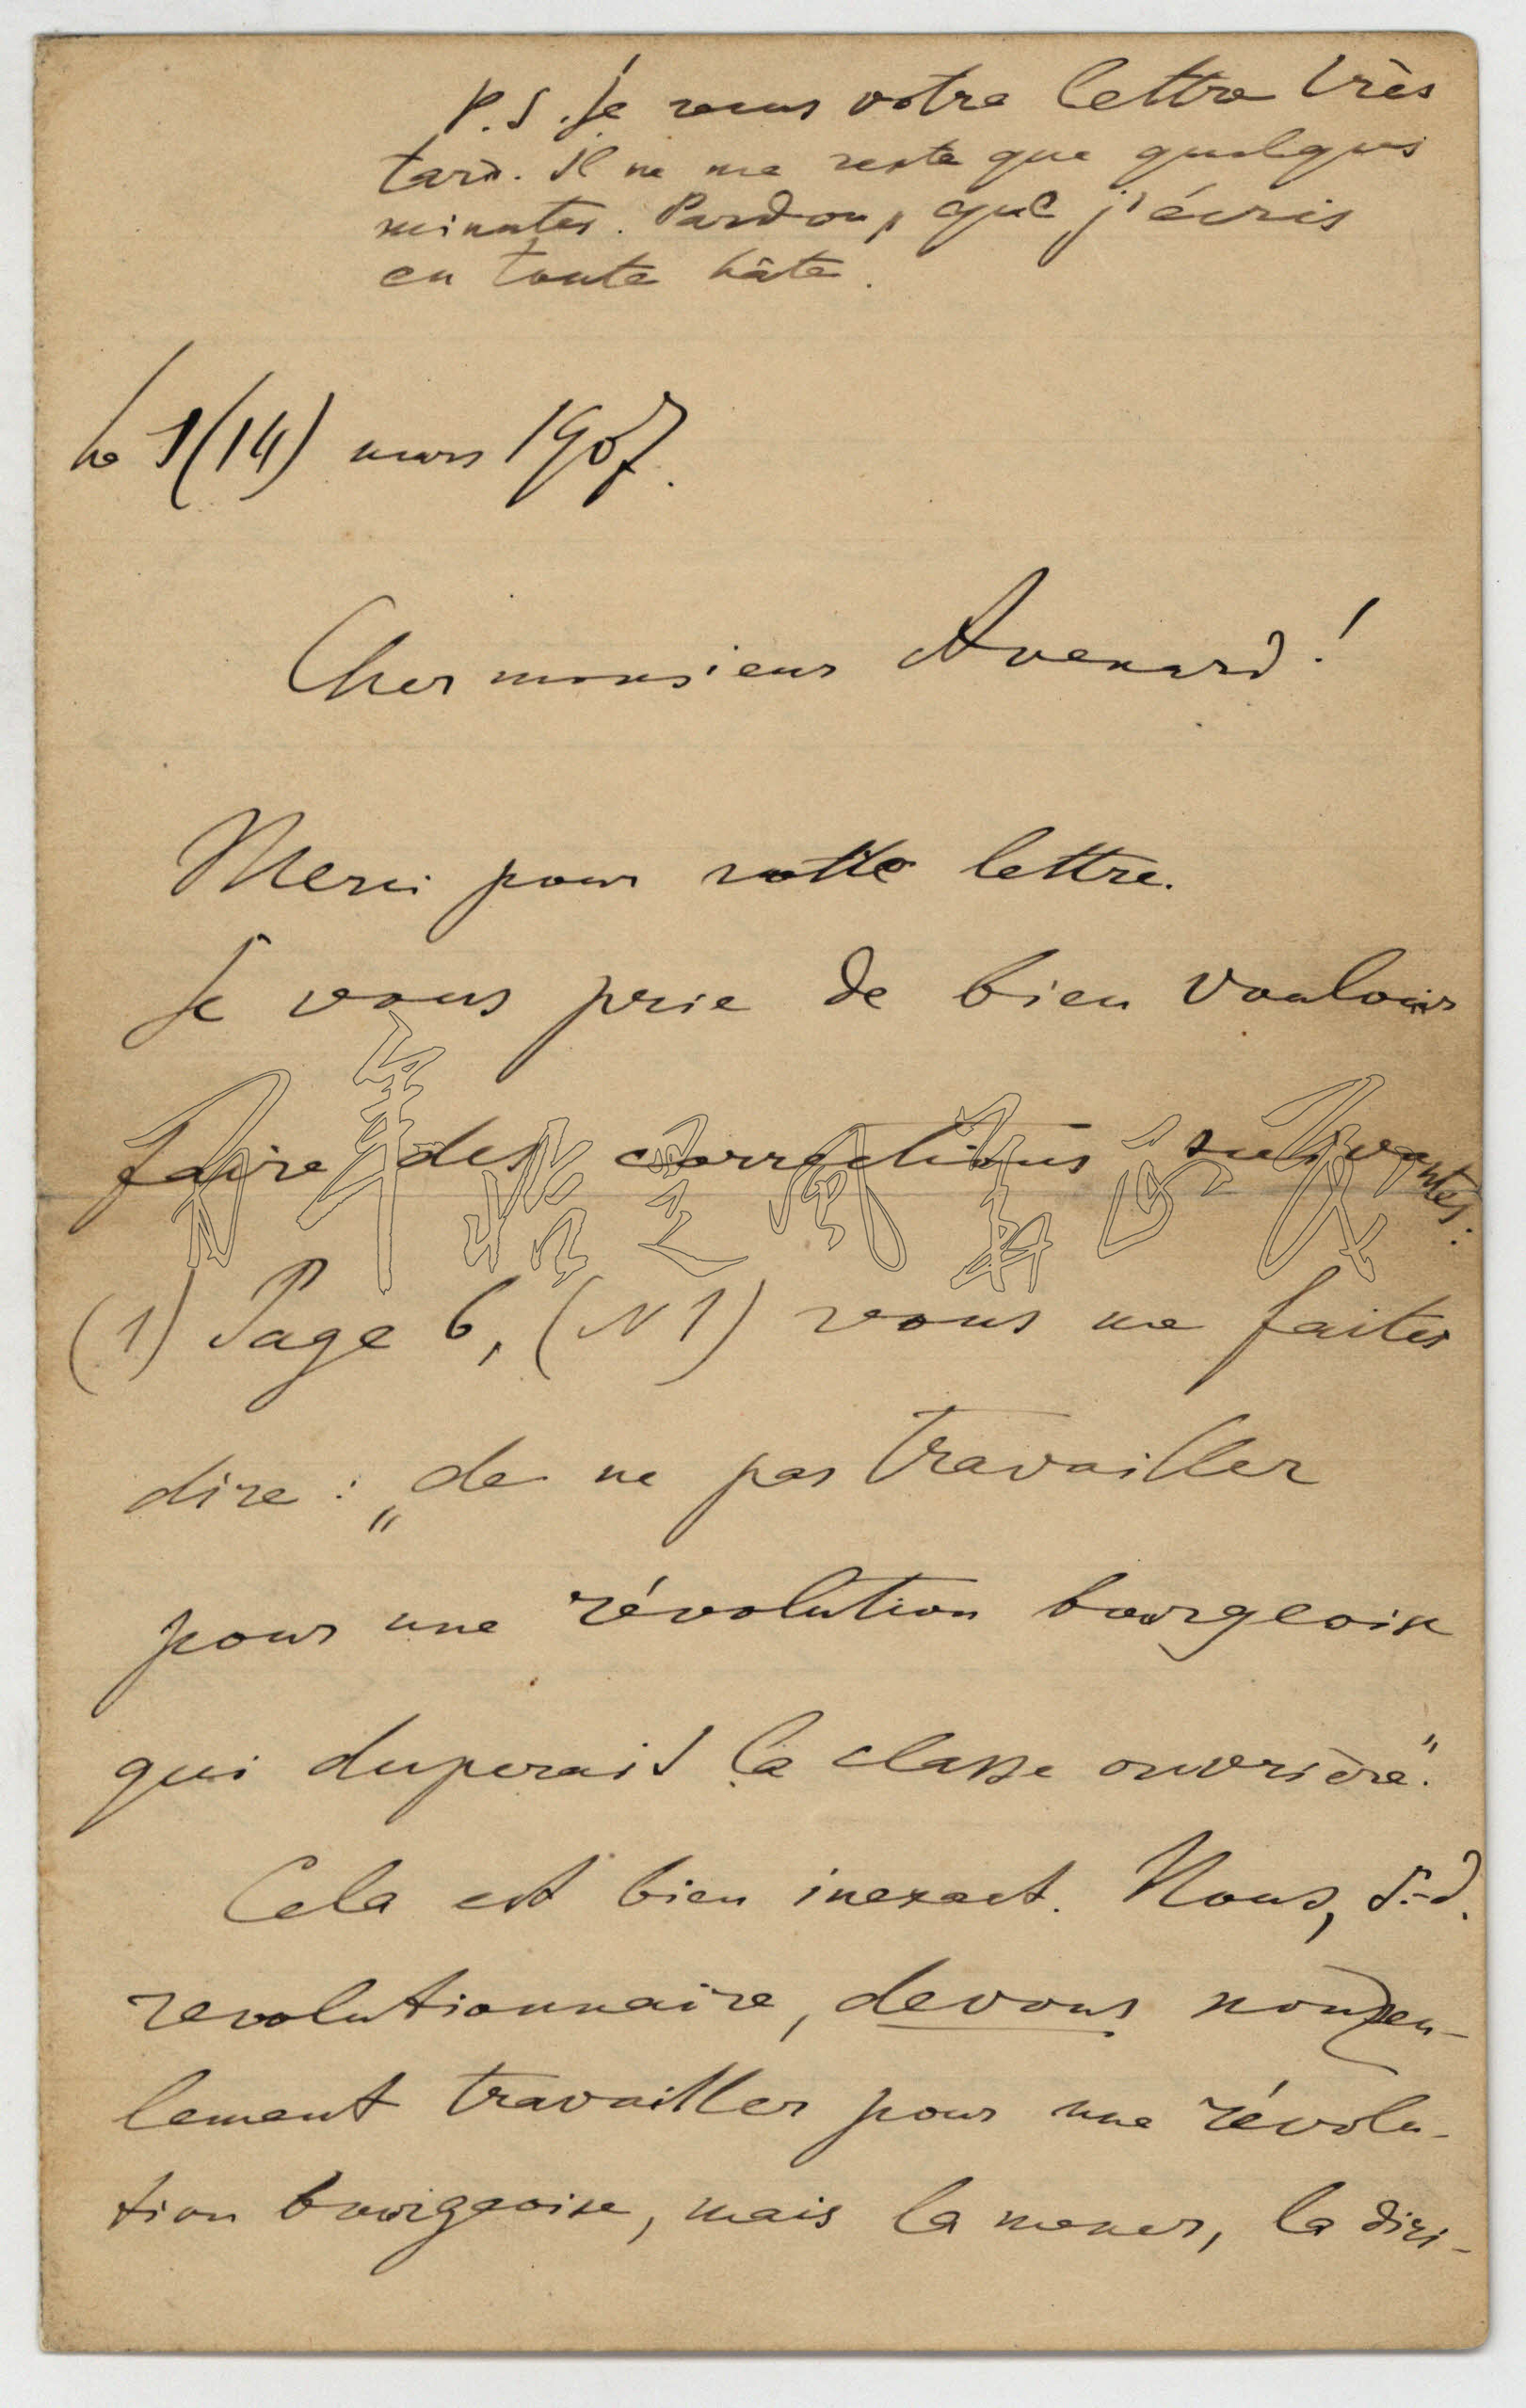 P.S. Je reçus votre lettre très
tard. Il ne me reste que quelques
minutes. Pardon, que j'écris
en toute hâte.
Le 1(14) mars 1907.
Cher monsieur Avenard!
Merci pour votre lettre.
Je vous prie de bien vouloir
faire des corrections suivantes:
(1) Page 6, (N 1) vous me faites
dire: „de ne pas travailler
pour une révolution bourgeoise
qui duperait la classe ouvrière".
Cela est bien inexact. Nous, s.-d.
revolutionnaire, devons nonseu-
lement travailler pour une révolu-
tion bourgeoise, mais la mener, la diri-